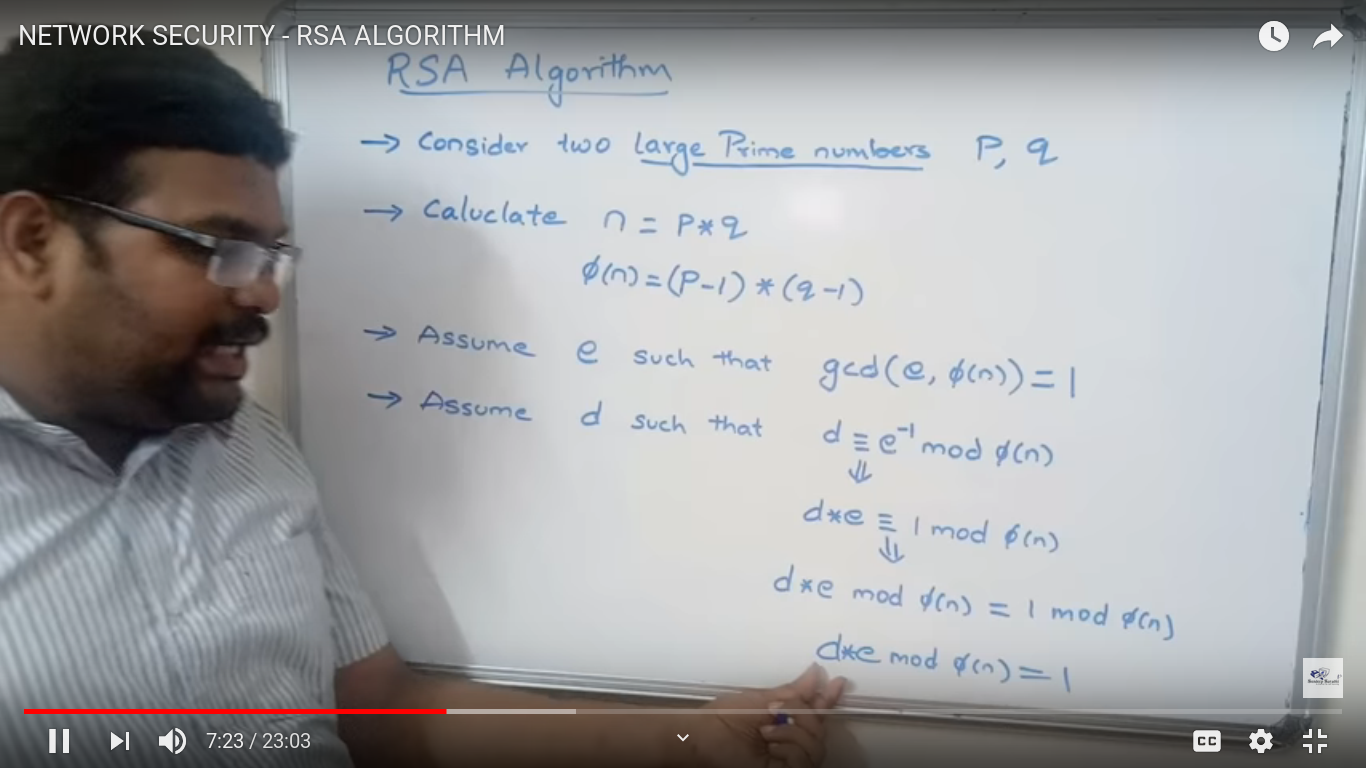 NETWORK SECURITY - RSA ALGORITHM
RSA Algorithm
→ Consider two large Prime numbers P, q
→ Caluclate n = P*q
ϕ(n)=(P-1) * (q-1)
→ Assume e such that gcd(e, ϕ(n)) = 1
→ Assume d such that d ≡ e⁻¹ mod ϕ(n)
⇓
d*e ≡ 1 mod ϕ(n)
⇓
d*e mod ϕ(n) = 1 mod ϕ(n)
d*e mod ϕ(n) = 1
7:23 / 23:03
CC